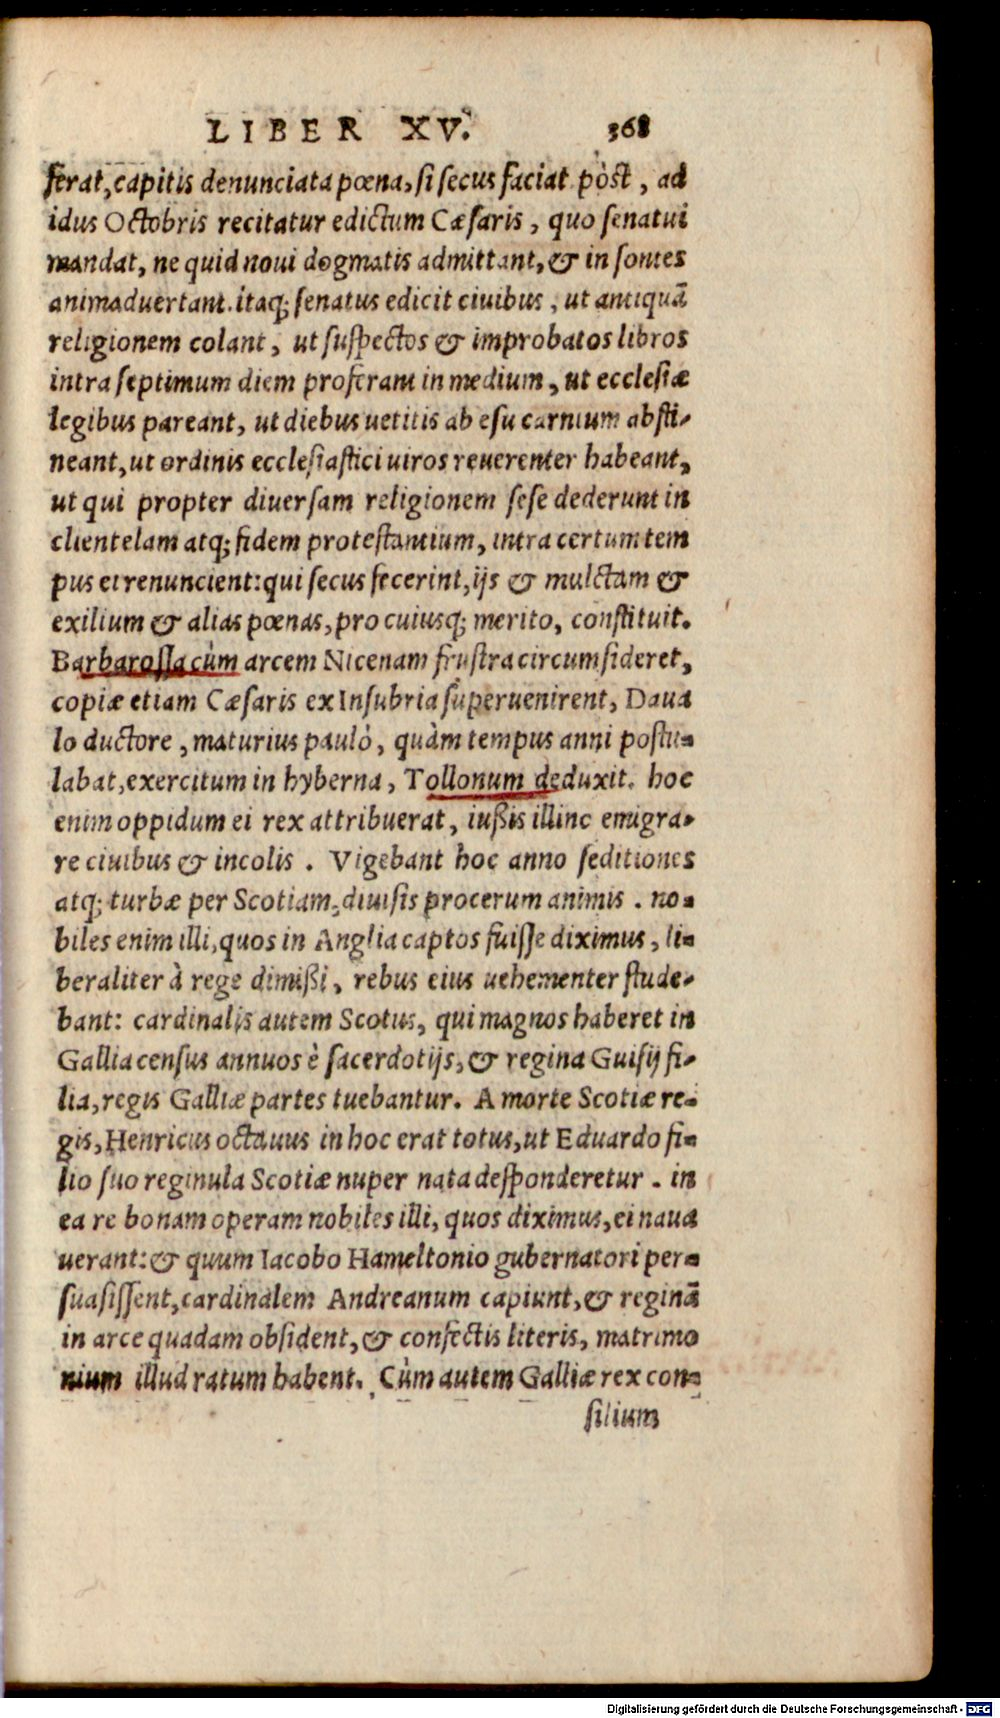 LIBER XV. 368
ferat, capitis denunciata pœna, si secus faciat pòst, ad
idus Octobris recitatur edictum Cæsaris, quo senatui
mandat, ne quid noui dogmatis admittant, & in sontes
animaduertant. itaq; senatus edicit ciuibus, ut antiquã
religionem colant, ut suspectos & improbatos libros
intra septimum diem proferant in medium, ut ecclesiæ
legibus pareant, ut diebus uetitis ab esu carnium absti-
neant, ut ordinis ecclesiastici uiros reuerenter habeant,
ut qui propter diuersam religionem sese dederunt in
clientelam atq; fidem protestantium, intra certum tem
pus ei renuncient: qui secus fecerint, ijs & mulctam &
exilium & alias pœnas, pro cuiusq; merito, constituit.
Barbarossa cùm arcem Nicenam frustra circumsideret,
copiæ etiam Cæsaris ex Insubria superuenirent, Daua
lo ductore, maturius paulò, quàm tempus anni postu-
labat, exercitum in hyberna, Tollonum deduxit. hoc
enim oppidum ei rex attribuerat, iußis illinc emigra-
re ciuibus & incolis. Vigebant hoc anno seditiones
atq; turbæ per Scotiam, diuisis procerum animis. no-
biles enim illi, quos in Anglia captos fuisse diximus, li-
beraliter à rege dimißi, rebus eius uehementer stude-
bant: cardinalis autem Scotus, qui magnos haberet in
Gallia census annuos è sacerdotijs, & regina Guisij fi-
lia, regis Galliæ partes tuebantur. A morte Scotiæ re-
gis, Henricus octauus in hoc erat totus, ut Eduardo fi-
lio suo reginula Scotiæ nuper nata desponderetur. in
ea re bonam operam nobiles illi, quos diximus, ei naua
uerant: & quum Iacobo Hameltonio gubernatori per-
suasissent, cardinalem Andreanum capiunt, & reginã
in arce quadam obsident, & confectis literis, matrimo
nium illud ratum habent. Cùm autem Galliæ rex con-
silium
Digitalisierung gefördert durch die Deutsche Forschungsgemeinschaft - DFG